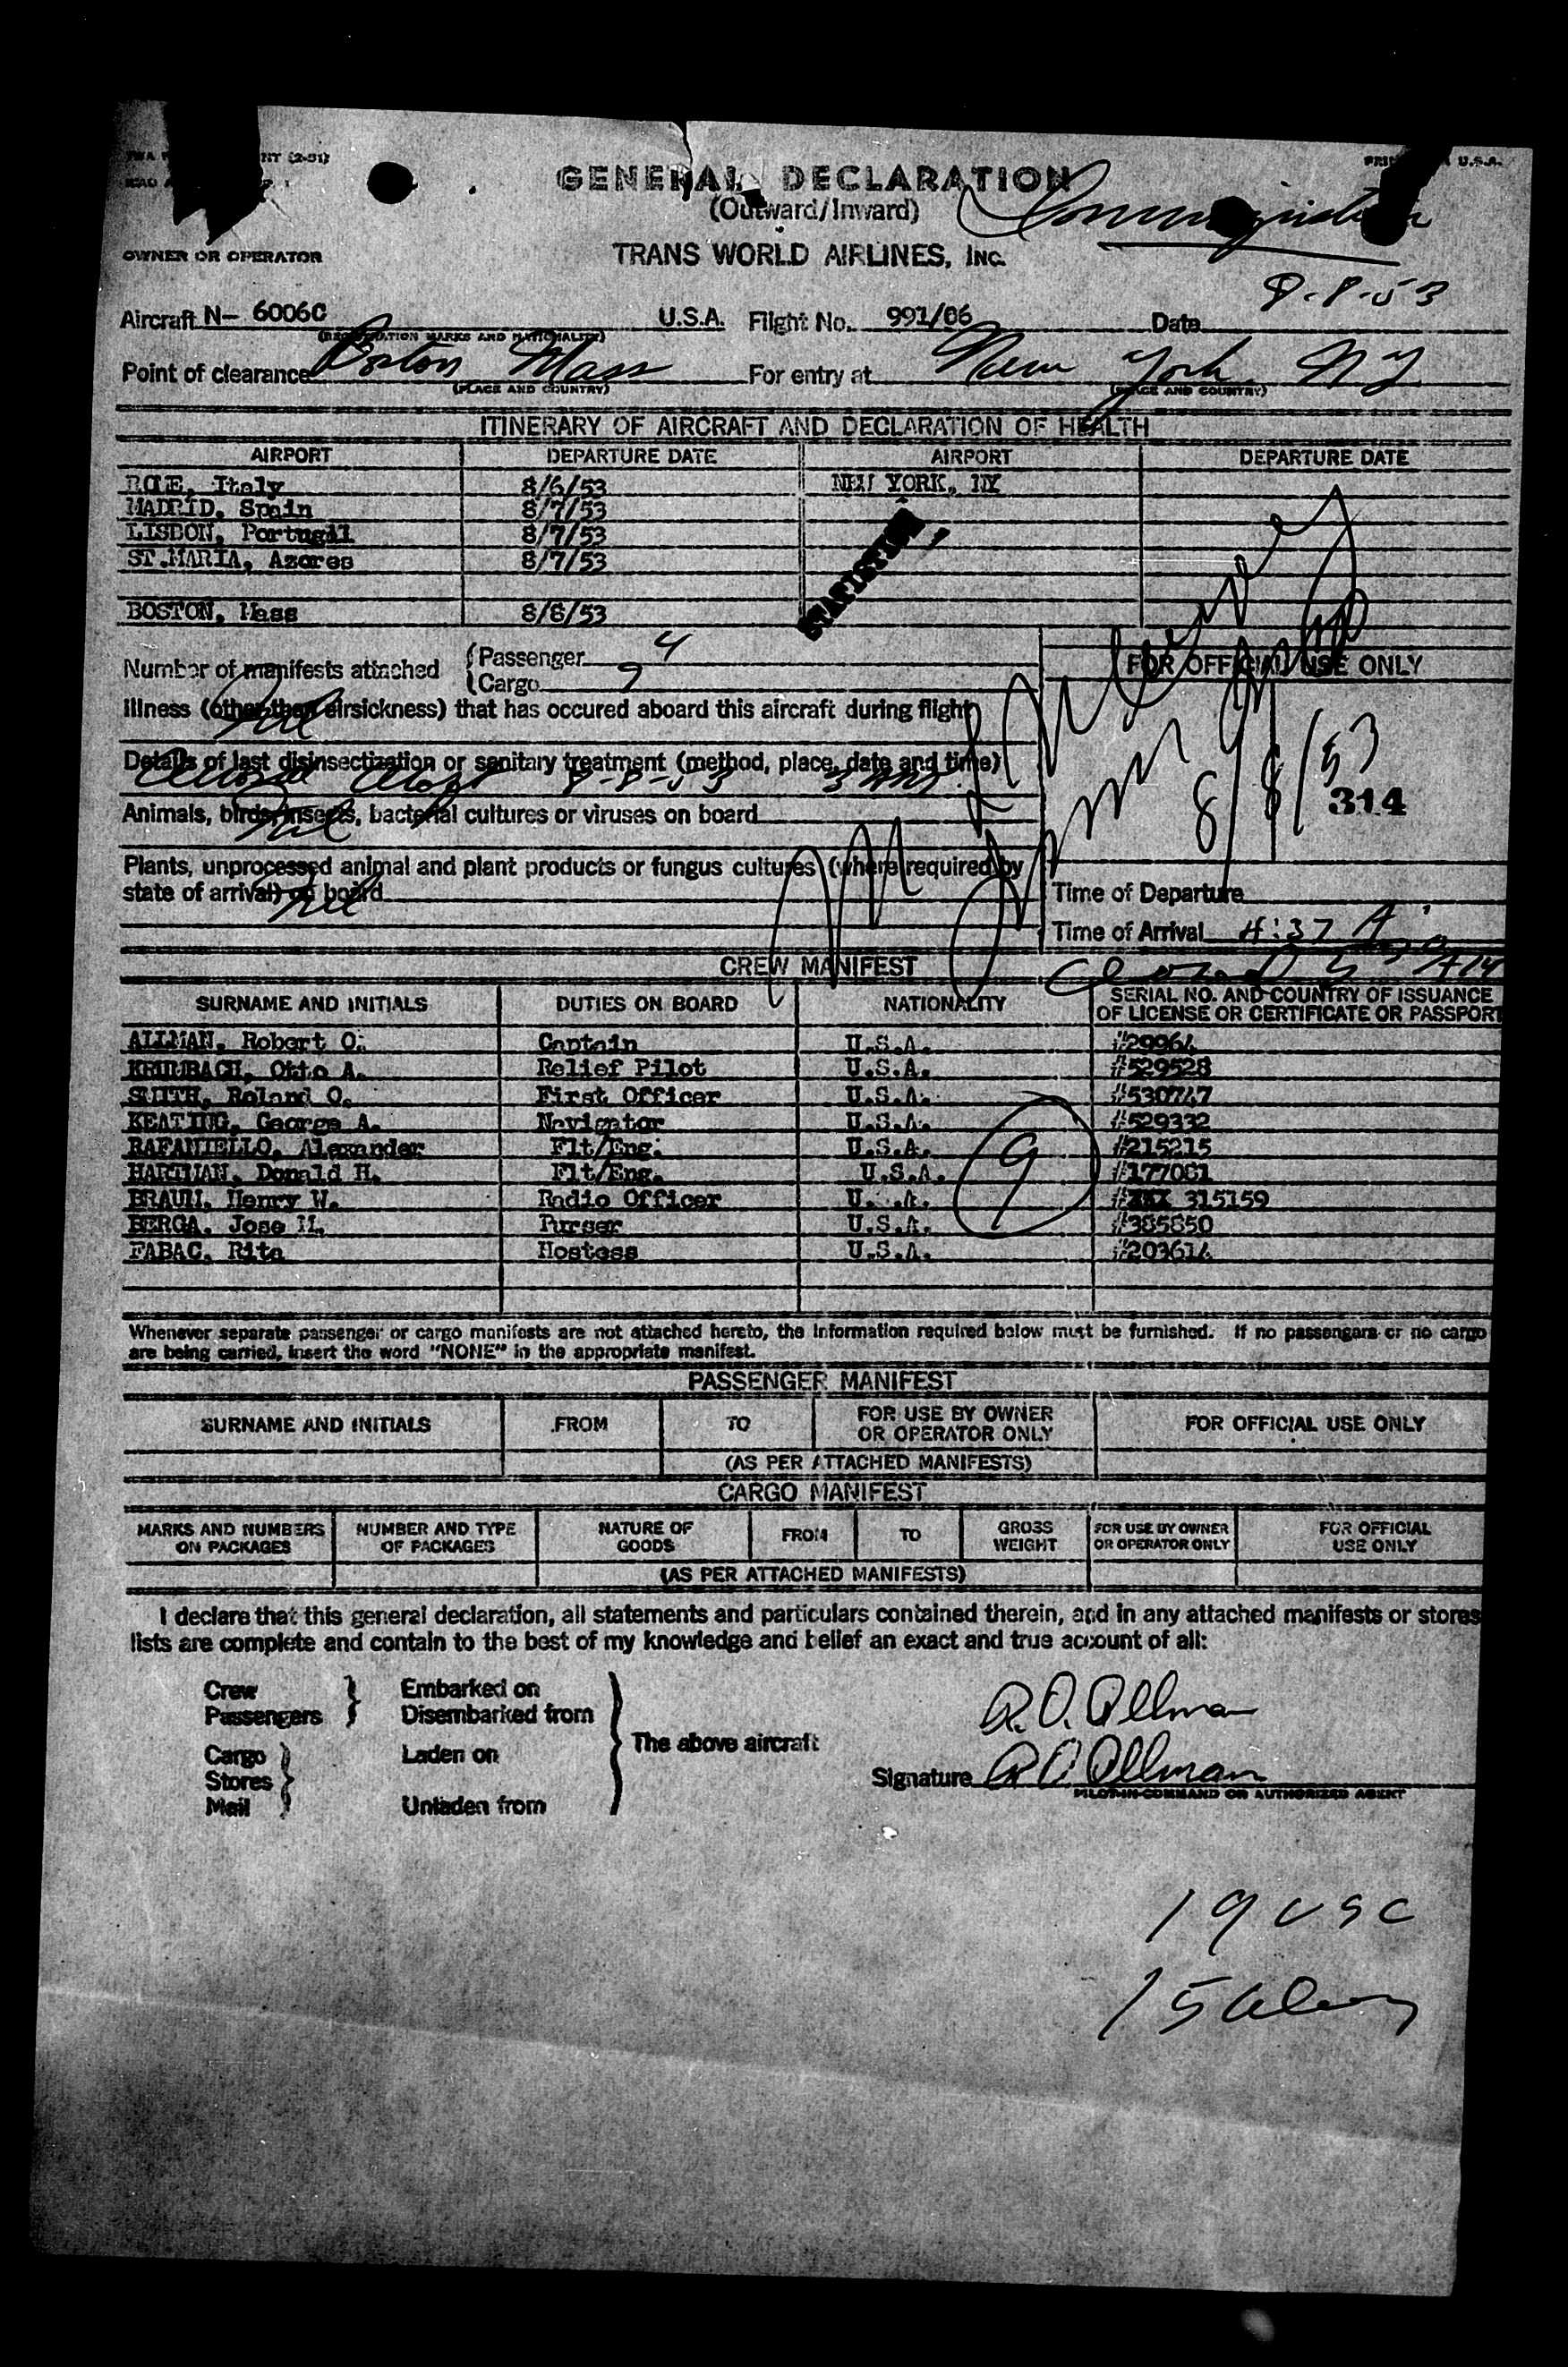 NT (2-51)
U.S.A.
GENERAL DECLARATION
(Outward/Inward)
OWNER OR OPERATOR
TRANS WORLD AIRLINES, INC.
8-8-53
Aircraft N- 6006C U.S.A. Flight No. 991/86 Date
(REGISTRATION MARKS AND NATIONALITY)
Point of clearance Boston Mass For entry at New York NY
(PLACE AND COUNTRY) (PLACE AND COUNTRY)
ITINERARY OF AIRCRAFT AND DECLARATION OF HEALTH
AIRPORT DEPARTURE DATE AIRPORT DEPARTURE DATE
ROME, Italy 8/6/53 NEW YORK, NY
MADRID, Spain 8/7/53
LISBON, Portugal 8/7/53
ST.MARIA, Azores 8/7/53
STATISTICS
BOSTON, Mass 8/8/53
Number of manifests attached Passenger 4
Cargo 9
FOR OFFICIAL USE ONLY
Illness (other than airsickness) that has occured aboard this aircraft during flight
Nil
Details of last disinsectization or sanitary treatment (method, place, date and time)
8-8-53
8/8/53
314
Animals, birds, insects, bacterial cultures or viruses on board
Nil
Plants, unprocessed animal and plant products or fungus cultures (where required by
state of arrival) on board
Nil
Time of Departure
Time of Arrival 4:37 A
CREW MANIFEST
SURNAME AND INITIALS DUTIES ON BOARD NATIONALITY SERIAL NO. AND COUNTRY OF ISSUANCE
OF LICENSE OR CERTIFICATE OR PASSPORT
ALLMAN, Robert O. Captain U.S.A. #29964
KRUMBACH, Otto A. Relief Pilot U.S.A. #529528
SMITH, Roland O. First Officer U.S.A. #530747
KEATING, George A. Navigator U.S.A. #529332
RAFANIELLO, Alexander Flt/Eng. U.S.A. #215215
HARTMAN, Donald H. Flt/Eng. U.S.A. #177061
BRAUN, Henry W. Radio Officer U. .A. #XXX 315159
BERGA, Jose M. Purser U.S.A. #385850
FABAC, Rita Hostess U.S.A. #203614
9
Whenever separate passenger or cargo manifests are not attached hereto, the information required below must be furnished. If no passengers or no cargo
are being carried, insert the word "NONE" in the appropriate manifest.
PASSENGER MANIFEST
SURNAME AND INITIALS FROM TO FOR USE BY OWNER
OR OPERATOR ONLY FOR OFFICIAL USE ONLY
(AS PER ATTACHED MANIFESTS)
CARGO MANIFEST
MARKS AND NUMBERS
ON PACKAGES NUMBER AND TYPE
OF PACKAGES NATURE OF
GOODS FROM TO GROSS
WEIGHT FOR USE BY OWNER
OR OPERATOR ONLY FOR OFFICIAL
USE ONLY
(AS PER ATTACHED MANIFESTS)
I declare that this general declaration, all statements and particulars contained therein, and in any attached manifests or stores
lists are complete and contain to the best of my knowledge and belief an exact and true account of all:
Crew Embarked on
Passengers Disembarked from
Cargo Laden on
Stores
Mail Unladen from
The above aircraft
R.O. Allman
Signature R O Allman
PILOT-IN-COMMAND OR AUTHORIZED AGENT
19 USC
15 alien